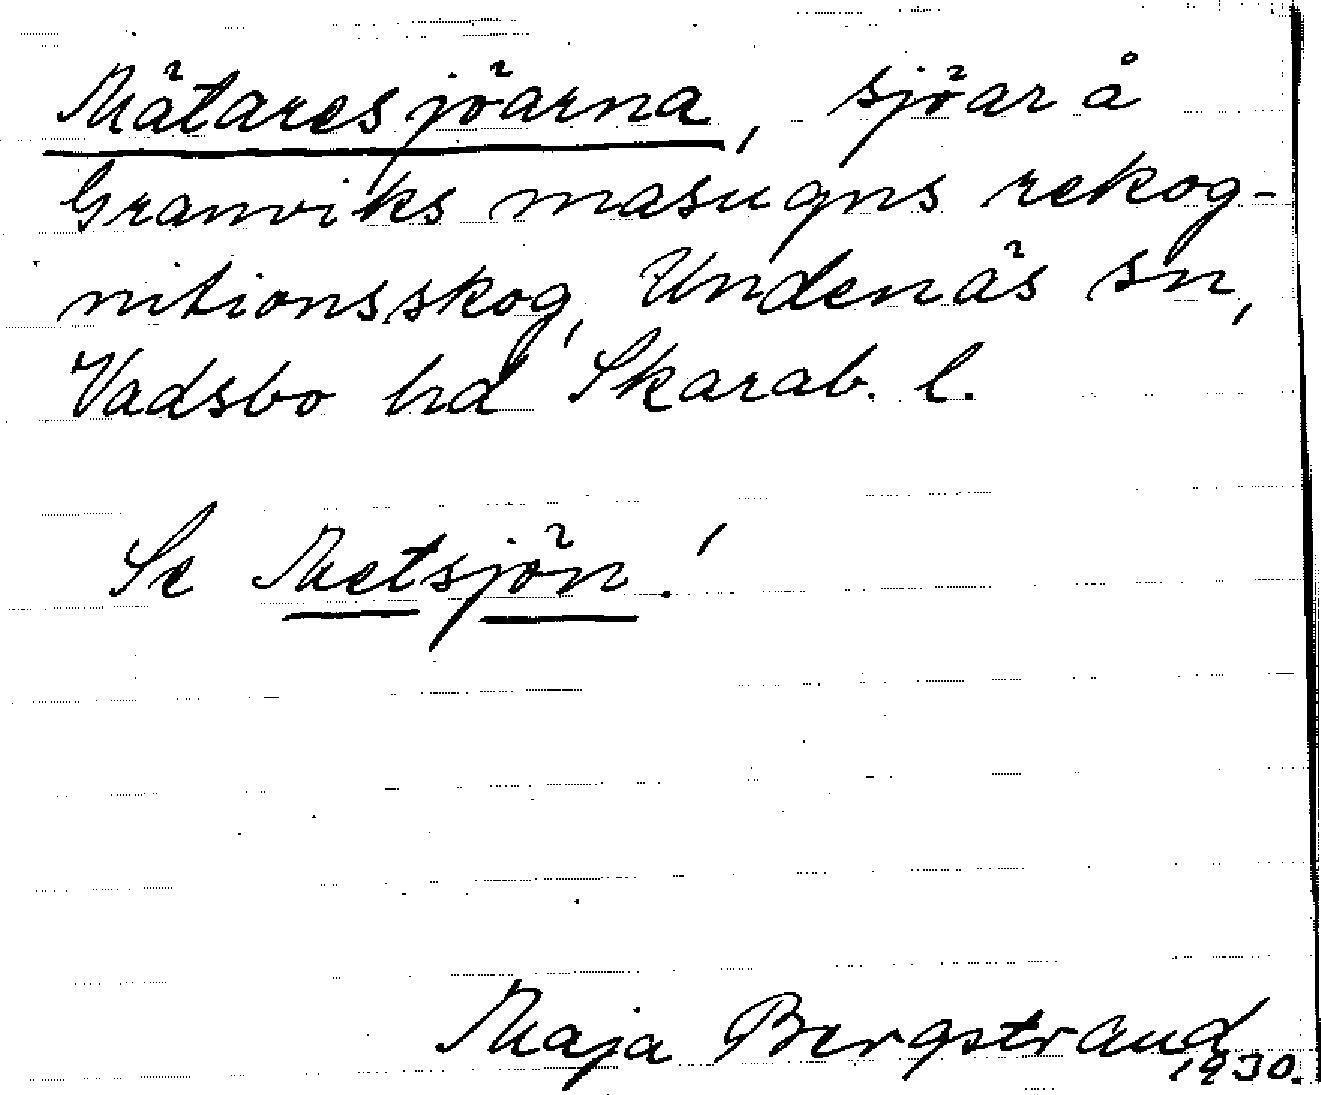 Mätaresjöarna, sjöar å
Granviks masugns rekog-
nitionsskog, Undenäs sn,
Vadsbo hd Skarab. l.
Se Metsjön!
Maja Bergstrand
1930.